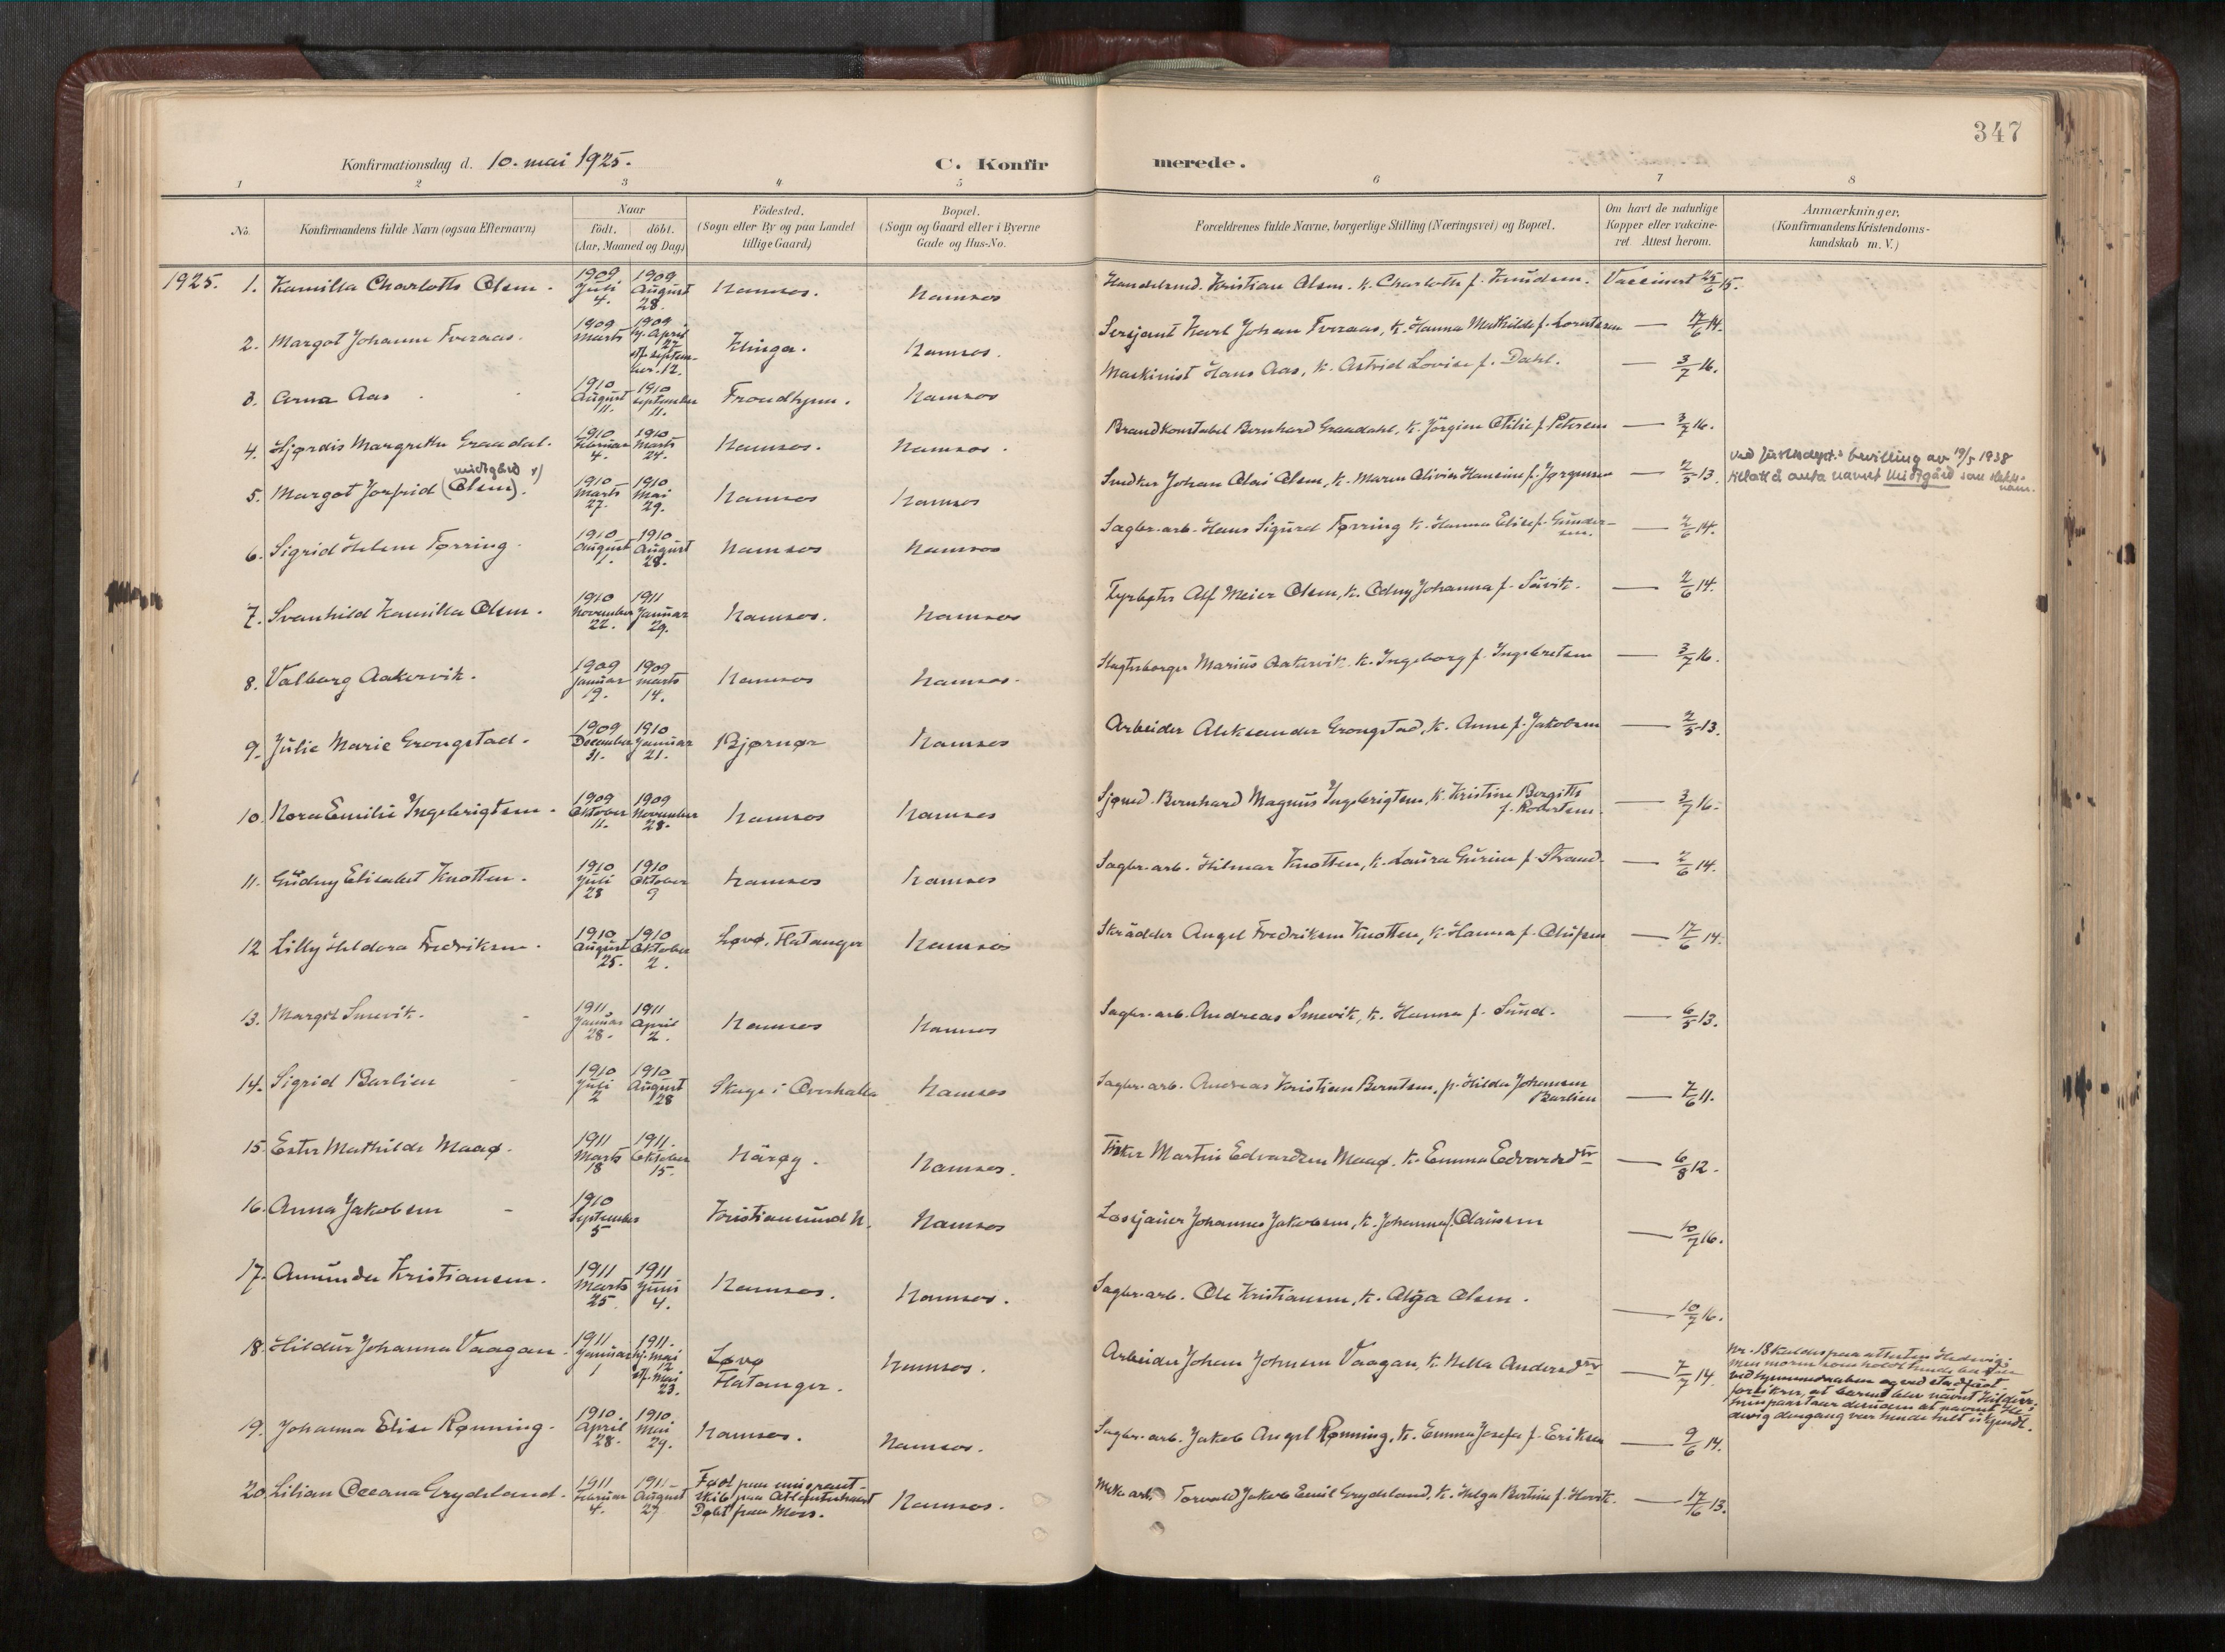 347
Konfirmationsdag d. 10. mai 1925.
C. Konfirmerede.
1 2 3 4 5 6 7 8
No.
Konfirmandens fulde Navn (ogsaa Efternavn)
Naar
födt. döbt.
(Aar, Maaned og Dag)
Födested.
(Sogn eller By og paa Landet
tillige Gaard)
Bopæl.
(Sogn og Gaard eller i Byerne
Gade og Hus-No.
Forældrenes fulde Navne, borgerlige Stilling (Næringsvei) og Bopæl.
Om havt de naturlige
Kopper eller vakcine-
ret. Attest herom.
Anmærkninger.
(Konfirmandens Kristendoms-
kundskab m. V.)
1925. 1. Kamilla Charlotte Olsen. 1909 Juli 4. 1909 August 28. Namsos. Namsos Handelsmd. Kristian Olsen. K. Charlotte f. Knudsen. Vaccinert 25/6 15.
2. Margot Johanne Tveraas. 1909 Marts 27. 1909 hj. April st. septem-ber. 12. Klinga. Namsos. Sersjant Karl Johan Tveraas, K. Hanna Mathilde f. Lorntsen — 17/6 14.
3. Arna Aas 1910 August 11. 1910 September 11. Trondhjem. Namsos Maskinist Hans Aas, K. Astrid Lovise f. Dahl. — 3/7 16.
4. Hjørdis Margrethe Graadal. 1910 Februar 4. 1910 Marts 24. Namsos. Namsos. Brandkonstabel Bernhard Graadahl, K. Jörgine Otilie f. Petersen — 3/7 16.
5. Margot Jorfrid (Olsen). Midtgård 1) 1910 Marts 27. 1910 Mai 29. Namsos Namsos Snedker Johan Olai Olsen, K. Maren Olivia Hansine f. Jørgensen — 2/5 13. Ved Justisdept.s bevilling av 19/5 1938
tillatt å anta navnet Midtgård som slekts-
navn.
6. Sigrid Helene Tørring. 1910 August 1. 1910 August 28. Namsos Namsos Sagbr. arb. Hans Sigurd Tørring K. Hanna Elise f. Gunder-
sen. — 2/6 14.
7. Svanhild Kamilla Olsen. 1910 November 22. 1911 Januar 29. Namsos. Namsos Fyrbøter Alf Meier Olsen, K. Odny Johanna f. Sævik. — 2/6 14.
8. Valborg Aakervik. 1909 Januar 19. 1909 Marts 14. Namsos Namsos. Slagtersborger Marius Aakervik. K. Ingeborg f. Ingebretsen — 3/7 16.
9. Julie Marie Grongstad. 1909 December 31. 1910 Januar 21. Bjørnør Namsos Arbeider Aleksander Grongstad, K. Anne f. Jakobsen — 2/5 13.
10. Nora Emilie Ingebrigtsen. 1909 Oktober 11. 1909 November 28. Namsos Namsos Sjømd. Bernhard Magnus Ingebrigtsen, K. Kristine Bergitte
f. Robertsen. — 3/7 16.
11. Gudny Elisabet Knotten. 1910 Juli 28 1910 Oktober 9 Namsos Namsos Sagbr. arb. Hilmar Knotten, K. Laura Gurine f. Strand. — 2/6 14.
12 Lilly Heldora Fredriksen. 1910 August 25. 1910 Oktober 2. Løvø, Flatanger Namsos Skrädder Angel Fredriksen Knotten, K. Hanna f. Olufsen — 17/6 14.
13. Margit Smevik. 1911 Januar 28. 1911 April 2. Namsos Namsos Sagbr. arb. Andreas Smevik, K. Hanna f. Sund. — 6/5 13.
14. Sigrid Barlien 1910 Juli 2 1910 August 28 Skage i Overhalla Namsos Sagbr. arb. Andreas Kristian Berntsen. p. Hilda Johansen
Barlien — 7/6 11.
15 Ester Mathilde Maaø. 1911 Marts 18 1911. Oktober 15. Närøy. Namsos. Fisker Martin Edvardsen Maaø. K. Emma Edvardsdtr — 6/8 12.
16. Anna Jakobsen 1910 September 5 Kristiansund N. Namsos Lossjauer Johannes Jakobsen, K. Johanna f. Clausen — 10/7 16.
17. Amunda Kristiansen. 1911 Marts 25. 1911 Juni 4. Namsos. Namsos. Sagbr. arb. Ole Kristiansen, K. Olga Olsen. — 10/7 16.
18. Hildur Johanna Vaagan. 1911 Januar 1 1911. hj. Mai 12. st. Mai 23. Løvø
Flatanger. Namsos. Arbeider Johan Johnsen Vaagan, K. Nella Andersdtr — 7/7 14. Nr. 18 kaldes paa attesten Hedevig;
men moren som holdt hende baade
ved hjemmedaaben og ved stadfæst.
forsikrer, at barnet blev nævnt Hildur;
hun paastaar desuden at navnet He-
devig dengang var hende helt ukjendt.
19. Johanna Elise Rønning. 1910. April 28. 1910. Mai 29. Namsos. Namsos. Sagbr. arb. Jakob Angel Rønning, K. Emma Josefa f. Eriksen — 9/6 14.
20. Lilian Oceana Grydeland. 1911 Februar 4. 1911 August 27 Født paa emigrant-
skib paa Atlanterhavet
Døbt paa Mors. Namsos. arb. Torvald Jakob Emil Grydeland, K. Helga Bertine f. Hovik. — 17/6 13.